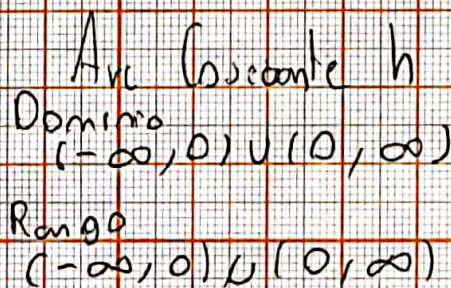 Arc Cosecante h
Dominio
(-∞, 0) ∪ (0, ∞)
Rango
(-∞, 0) ∪ (0, ∞)